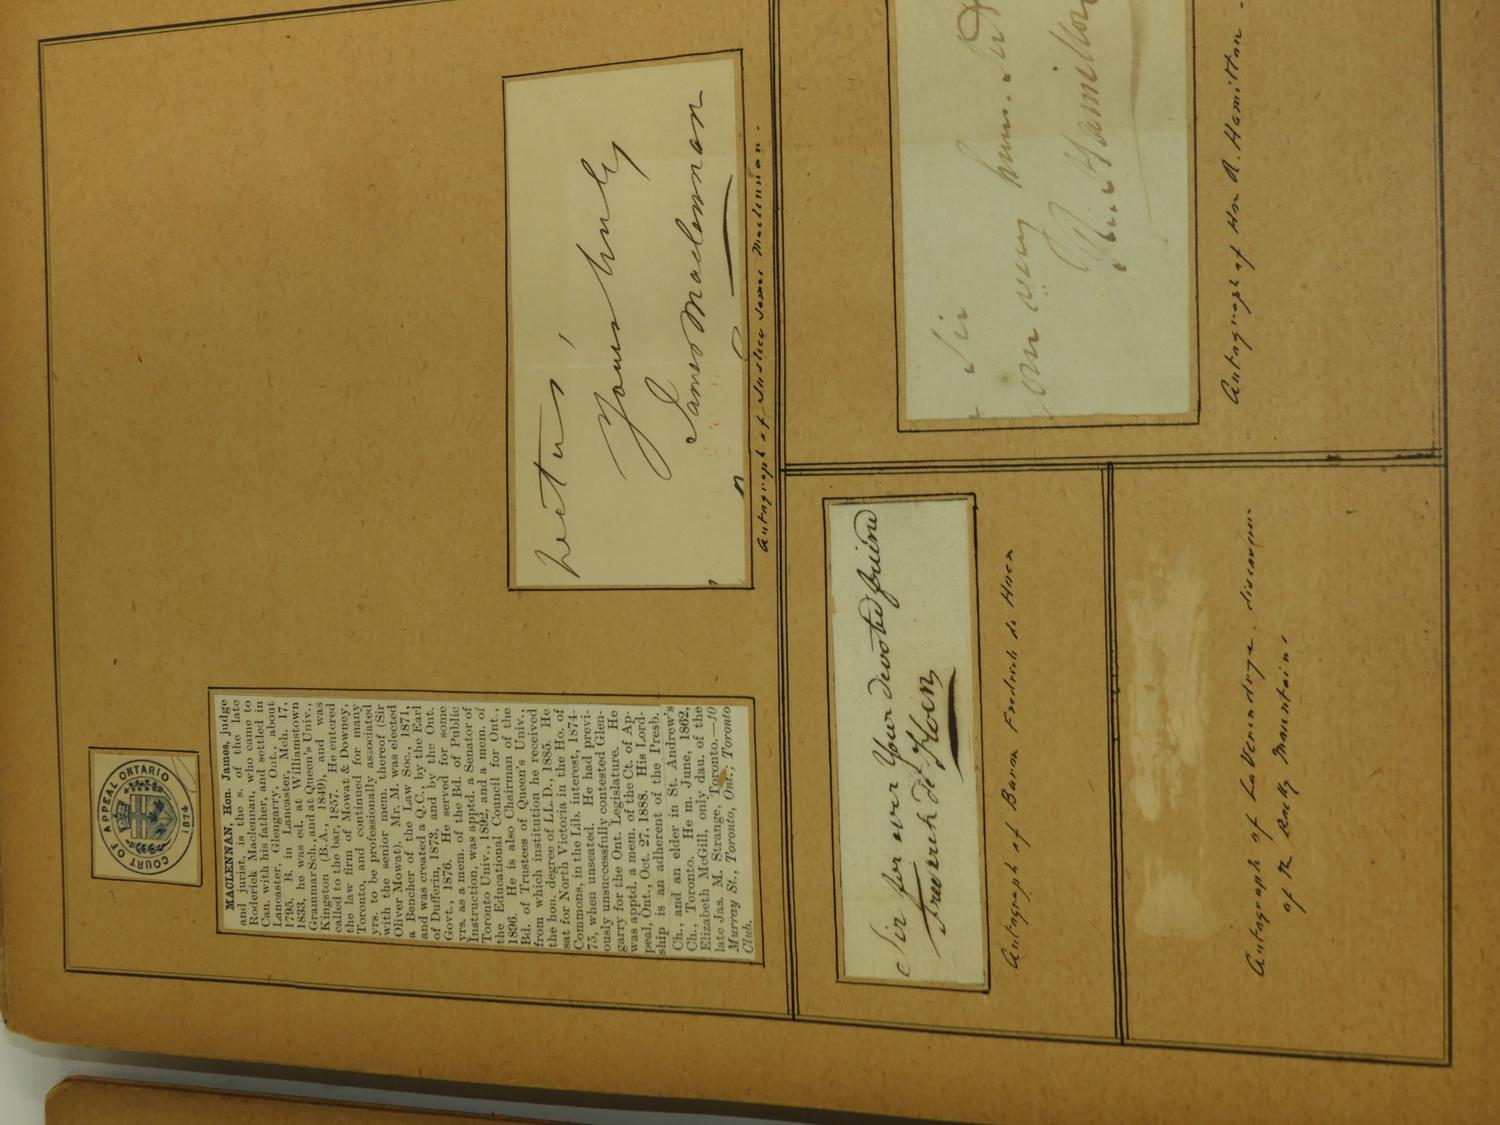 COURT OF APPEAL ONTARIO
1874
MACLENNAN, Hon. James, judge
and jurist, is the s. of the late
Roderick Maclennan, who came to
Can. with his father, and settled in
Lancaster, Glengarry, Ont., about
1795. B. in Lancaster, Mch. 17,
1833, he was ed. at Williamstown
Grammar Sch., and at Queen's Univ.,
Kingston (B.A., 1849), and was
called to the bar, 1857. He entered
the law firm of Mowat & Downey,
Toronto, and continued for many
yrs. to be professionally associated
with the senior mem. thereof (Sir
Oliver Mowat). Mr. M. was elected
a Bencher of the Law Soc., 1871,
and was created a Q.C., by the Earl
of Dufferin, 1873, and by the Ont.
Govt., 1876. He served for some
yrs. as a mem. of the Bd. of Public
Instruction, was apptd. a Senator of
Toronto Univ., 1892, and a mem. of
the Educational Council for Ont.,
1896. He is also Chairman of the
Bd. of Trustees of Queen's Univ.,
from which institution he received
the hon. degree of LL.D., 1885. He
sat for North Victoria in the Ho. of
Commons, in the Lib. interest, 1874-
75, when unseated. He had previ-
ously unsuccessfully contested Glen-
garry for the Ont. Legislature. He
was apptd. a mem. of the Ct. of Ap-
peal, Ont., Oct. 27, 1888. His Lord-
ship is an adherent of the Presb.
Ch., and an elder in St. Andrew's
Ch., Toronto. He m. June, 1862,
Elizabeth McGill, only dau. of the
late Jas. M. Strange, Toronto.—10
Murray St., Toronto, Ont.; Toronto
Club.
Yours truly
James Maclennan
Autograph of Justice James Maclennan -
Sir for ever Your devoted friend
Frederick de Hoen
Autograph of Baron Frederick de Hoen
Sir
very hum. Sert
R. Hamilton
Autograph of Hon R. Hamilton -
Autograph of La Verendrye. discoverer
of the Rocky Mountains